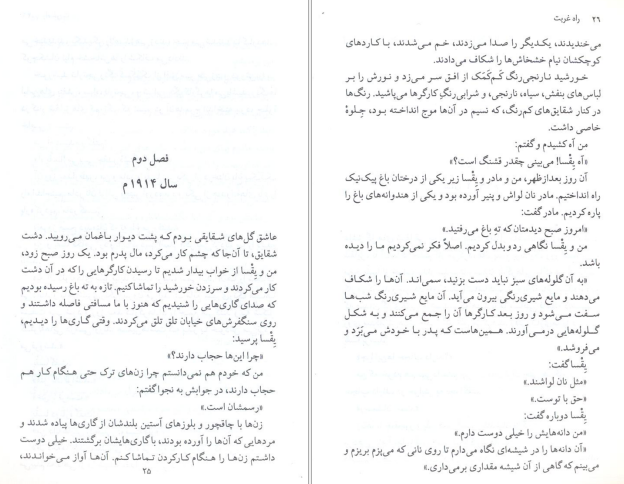 فصل دوم
سال ۱۹۱۴ م
عاشق گل‌های شقایقی بودم که پشت دیوار باغمان می‌رویید. دشت
شقایق، تا آن‌جا که چشم کار می‌کرد، مال پدرم بود. یک روز صبح زود،
من و یِقْسا از خواب بیدار شدیم تا رسیدن کارگرهایی را که در آن دشت
کار می‌کردند و سرزدن خورشید را تماشا کنیم. تازه به ته باغ رسیده بودیم
که صدای گاری‌هایی را شنیدیم که هنوز با ما مسافتی فاصله داشتند و
روی سنگفرش‌های خیابان تلق تلق می‌کردند. وقتی گاری‌ها را دیدیم،
یِقْسا پرسید:
«چرا این‌ها حجاب دارند؟»
من که خودم هم نمی‌دانستم چرا زن‌های ترک حتی هنگام کار هم
حجاب دارند، در جوابش به نجوا گفتم:
«رسمشان است.»
زن‌ها با چاقچور و بلوزهای آستین بلندشان از گاری‌ها پیاده شدند و
مردهایی که آن‌ها را آورده بودند، با گاری‌هایشان برگشتند. خیلی دوست
داشتم زن‌ها را هنگام کارکردن تماشا کنم. آن‌ها آواز می‌خواندند،
۲۵
۲۶ راه غربت
می‌خندیدند، یکدیگر را صدا می‌زدند، خم می‌شدند، با کاردهای
کوچکشان نیام خشخاش‌ها را شکاف می‌دادند.
خورشید نارنجی‌رنگ کَم‌کَمَک از افق سر می‌زد و نورش را بر
لباس‌های بنفش، سیاه، نارنجی، و شرابی‌رنگِ کارگرها می‌پاشید. رنگ‌ها
در کنار شقایق‌های کم‌رنگ، که نسیم در آن‌ها موج انداخته بود، جلوهٔ
خاصی داشت.
من آه کشیدم و گفتم:
«آه یِقْسا! می‌بینی چقدر قشنگ است؟»
آن روز بعدازظهر، من و مادر و یِقْسا زیر یکی از درختان باغ پیک‌نیک
راه انداختیم. مادر نان لواش و پنیر آورده بود و یکی از هندوانه‌های باغ را
پاره کردیم. مادر گفت:
«امروز صبح دیدمتان که تهِ باغ می‌رفتید.»
من و یِقْسا نگاهی رد و بدل کردیم. اصلاً فکر نمی‌کردیم ما را دیده
باشد.
«به آن گلوله‌های سبز نباید دست بزنید، سمی‌اند. آن‌ها را شکاف
می‌دهند و مایع شیری‌رنگی بیرون می‌آید. آن مایع شیری‌رنگ شب‌ها
سفت می‌شود و روز بعد کارگرها آن را جمع می‌کنند و به شکل
گلوله‌هایی درمی‌آورند. همین‌هاست که پدر با خودش می‌بَرَد و
می‌فروشد.»
یِقْسا گفت:
«مثل نان لواشند.»
«حق با توست.»
یِقْسا دوباره گفت:
«من دانه‌هایش را خیلی دوست دارم.»
«آن دانه‌ها را در شیشه‌ای نگاه می‌دارم تا روی نانی که می‌پزم بریزم و
می‌بینم که گاهی از آن شیشه مقداری برمی‌داری.»